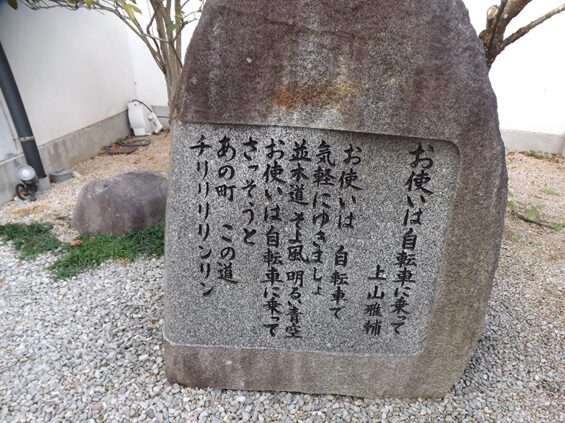 お使いは自転車に乗って
上山雅輔
お使いは 自転車で
気軽にゆきましょ
並木道 そよ風 明るい青空
お使いは自転車に乗って
さっそうと
あの町 この道
チリリリリンリン